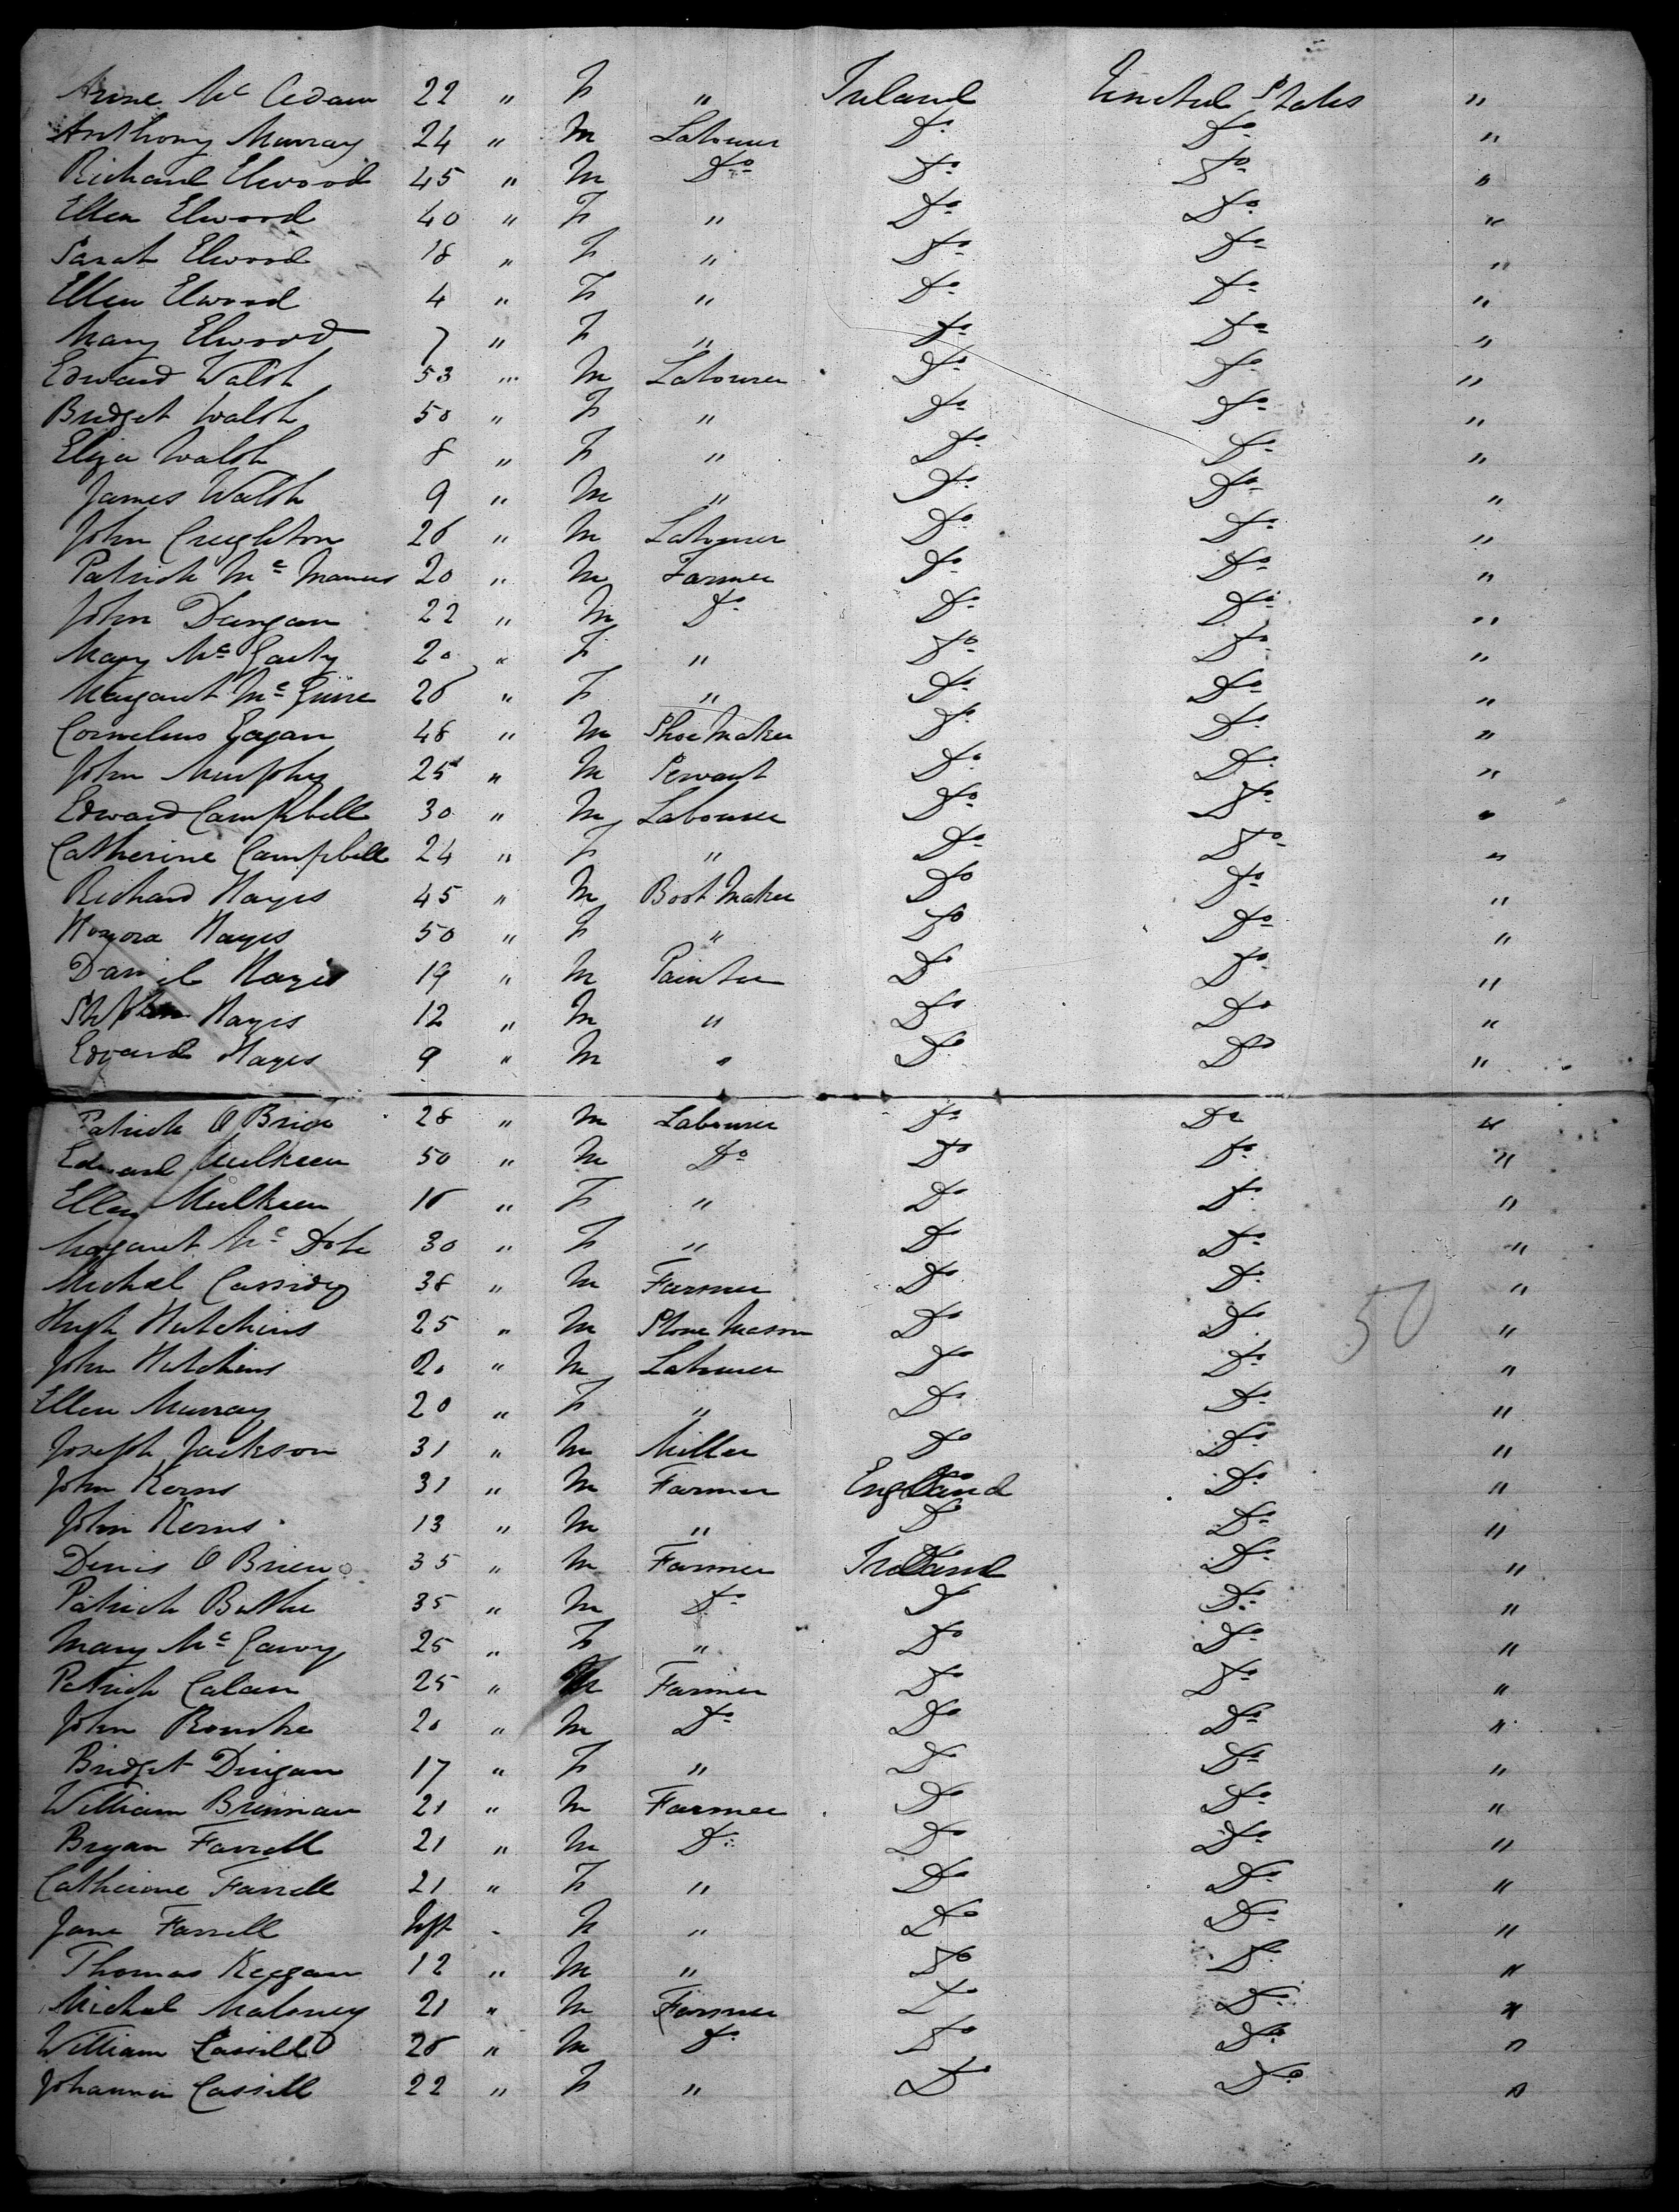 Anne Mc Adam 22 " F " Ireland United States "
Anthony Murray 24 " M Labourer Do Do "
Richard Elwood 45 " M Do Do Do "
Ellen Elwood 40 " F " Do Do "
Sarah Elwood 18 " F " Do Do "
Ellen Elwood 4 " F " Do Do "
Mary Elwood 7 " F " Do Do "
Edward Walsh 53 " M Labourer Do Do "
Bridget Walsh 50 " F " Do Do "
Eliza Walsh 8 " F " Do Do "
James Walsh 9 " M " Do Do "
John Creighton 26 " M Labourer Do Do "
Patrick Mc Manus 20 " M Farmer Do Do "
John Dungan 22 " M Do Do Do "
Mary Mc 20 " F " Do Do "
Margaret Mc Guire 26 " F " Do Do "
Cornelius Eagan 48 " M Shoe Maker Do Do "
John Murphy 25 " M Servant Do Do "
Edward Campbell 30 " M Labourer Do Do "
Catherine Campbell 24 " F " Do Do "
Richard Hayes 45 " M Boot Maker Do Do "
Honora Hayes 50 " F " Do Do "
Daniel Hayes 19 " M Painter Do Do "
Stephen Hayes 12 " M " Do Do "
Edward Hayes 9 " M " Do Do "
Patrick O Brien 28 " M Labourer Do Do "
Edward Mulkeen 50 " M Do Do Do "
Ellen Mulkeen 16 " F " Do Do "
Margaret Mc 30 " F " Do Do "
Michael Cassidy 38 " M Farmer Do Do "
Hugh Hutchins 25 " M Stone Mason Do Do 50 "
John Hutchins 20 " M Labourer Do Do "
Ellen Murray 20 " F " Do Do "
Joseph Jackson 31 " M Miller Do Do "
John Kerns 31 " M Farmer England Do "
John Kerns 13 " M " Do Do "
Denis O Brien 35 " M Farmer Ireland Do "
Patrick 35 " M Do Do Do "
Mary Mc 25 " F " Do Do "
Patrick Calan 25 " M Farmer Do Do "
John Rourke 20 " M Do Do Do "
Bridget Dingan 17 " F " Do Do "
William Brennan 21 " M Farmer Do Do "
Bryan Farrell 21 " M Do Do Do "
Catherine Farrell 21 " F " Do Do "
Jane Farrell Inft - F " Do Do "
Thomas Keegan 12 " M " Do Do "
Michal Maloney 21 " M Farmer Do Do "
William Cassill 26 " M Do Do Do "
Johanna Cassill 22 " F " Do Do "